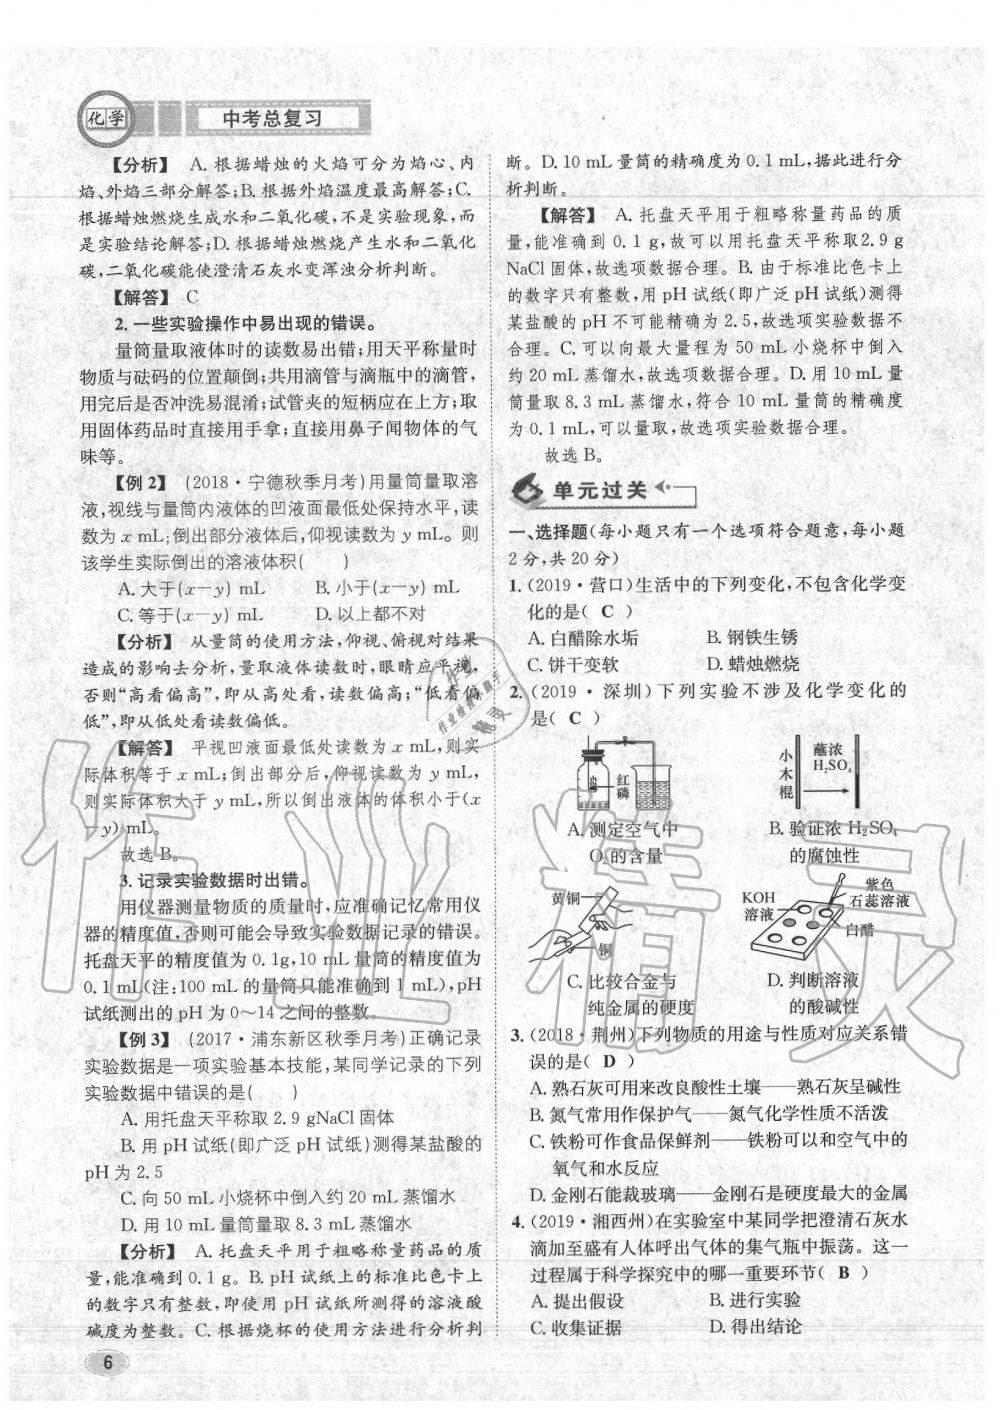 化学
中考总复习
【分析】 A. 根据蜡烛的火焰可分为焰心、内
焰、外焰三部分解答;B. 根据外焰温度最高解答;C.
根据蜡烛燃烧生成水和二氧化碳,不是实验现象,而
是实验结论解答;D. 根据蜡烛燃烧产生水和二氧化
碳,二氧化碳能使澄清石灰水变浑浊分析判断。
【解答】 C
2. 一些实验操作中易出现的错误。
量筒量取液体时的读数易出错;用天平称量时
物质与砝码的位置颠倒;共用滴管与滴瓶中的滴管,
用完后是否冲洗易混淆;试管夹的短柄应在上方;取
用固体药品时直接用手拿;直接用鼻子闻物体的气
味等。
【例 2】 (2018·宁德秋季月考)用量筒量取溶
液,视线与量筒内液体的凹液面最低处保持水平,读
数为 x mL;倒出部分液体后,仰视读数为 y mL。则
该学生实际倒出的溶液体积(　　)
A. 大于(x－y) mL　　B. 小于(x－y) mL
C. 等于(x－y) mL　　D. 以上都不对
【分析】 从量筒的使用方法,仰视、俯视对结果
造成的影响去分析,量取液体读数时,眼睛应平视,
否则“高看偏高”,即从高处看,读数偏高;“低看偏
低”,即从低处看读数偏低。
【解答】 平视凹液面最低处读数为 x mL,则实
际体积等于 x mL;倒出部分后,仰视读数为 y mL,
则实际体积大于 y mL,所以倒出液体的体积小于(x
－y) mL。
故选 B。
3. 记录实验数据时出错。
用仪器测量物质的质量时,应准确记忆常用仪
器的精度值,否则可能会导致实验数据记录的错误。
托盘天平的精度值为 0.1g,10 mL 量筒的精度值为
0.1 mL(注:100 mL 的量筒只能准确到 1 mL),pH
试纸测出的 pH 为 0～14 之间的整数。
【例 3】 (2017·浦东新区秋季月考)正确记录
实验数据是一项实验基本技能,某同学记录的下列
实验数据中错误的是(　　)
A. 用托盘天平称取 2.9 gNaCl 固体
B. 用 pH 试纸(即广泛 pH 试纸)测得某盐酸的
pH 为 2.5
C. 向 50 mL 小烧杯中倒入约 20 mL 蒸馏水
D. 用 10 mL 量筒量取 8.3 mL 蒸馏水
【分析】 A. 托盘天平用于粗略称量药品的质
量,能准确到 0.1 g。B. pH 试纸上的标准比色卡上
的数字只有整数,即使用 pH 试纸所测得的溶液酸
碱度为整数。C. 根据烧杯的使用方法进行分析判
6
断。D. 10 mL 量筒的精确度为 0.1 mL,据此进行分
析判断。
【解答】 A. 托盘天平用于粗略称量药品的质
量,能准确到 0.1 g,故可以用托盘天平称取2.9 g
NaCl 固体,故选项数据合理。B. 由于标准比色卡上
的数字只有整数,用 pH 试纸(即广泛 pH 试纸)测得
某盐酸的 pH 不可能精确为 2.5,故选项实验数据不
合理。C. 可以向最大量程为 50 mL 小烧杯中倒入
约 20 mL 蒸馏水,故选项数据合理。D. 用 10 mL 量
筒量取 8.3 mL 蒸馏水,符合 10 mL 量筒的精确度
为 0.1 mL,可以量取,故选项实验数据合理。
故选 B。
单元过关
一、选择题(每小题只有一个选项符合题意,每小题
2 分,共 20 分)
1. (2019·营口)生活中的下列变化,不包含化学变
化的是( C )
A. 白醋除水垢　　B. 钢铁生锈
C. 饼干变软　　D. 蜡烛燃烧
2. (2019·深圳)下列实验不涉及化学变化的
是( C )
红磷
小木棍
蘸浓H₂SO₄
A. 测定空气中O₂的含量
B. 验证浓 H₂SO₄的腐蚀性
黄铜
铜
KOH溶液
紫色石蕊溶液
白醋
C. 比较合金与纯金属的硬度
D. 判断溶液的酸碱性
3. (2018·荆州)下列物质的用途与性质对应关系错
误的是( D )
A. 熟石灰可用来改良酸性土壤——熟石灰呈碱性
B. 氮气常用作保护气——氮气化学性质不活泼
C. 铁粉可作食品保鲜剂——铁粉可以和空气中的
氧气和水反应
D. 金刚石能裁玻璃——金刚石是硬度最大的金属
4. (2019·湘西州)在实验室中某同学把澄清石灰水
滴加至盛有人体呼出气体的集气瓶中振荡。这一
过程属于科学探究中的哪一重要环节( B )
A. 提出假设　　B. 进行实验
C. 收集证据　　D. 得出结论
作业精灵